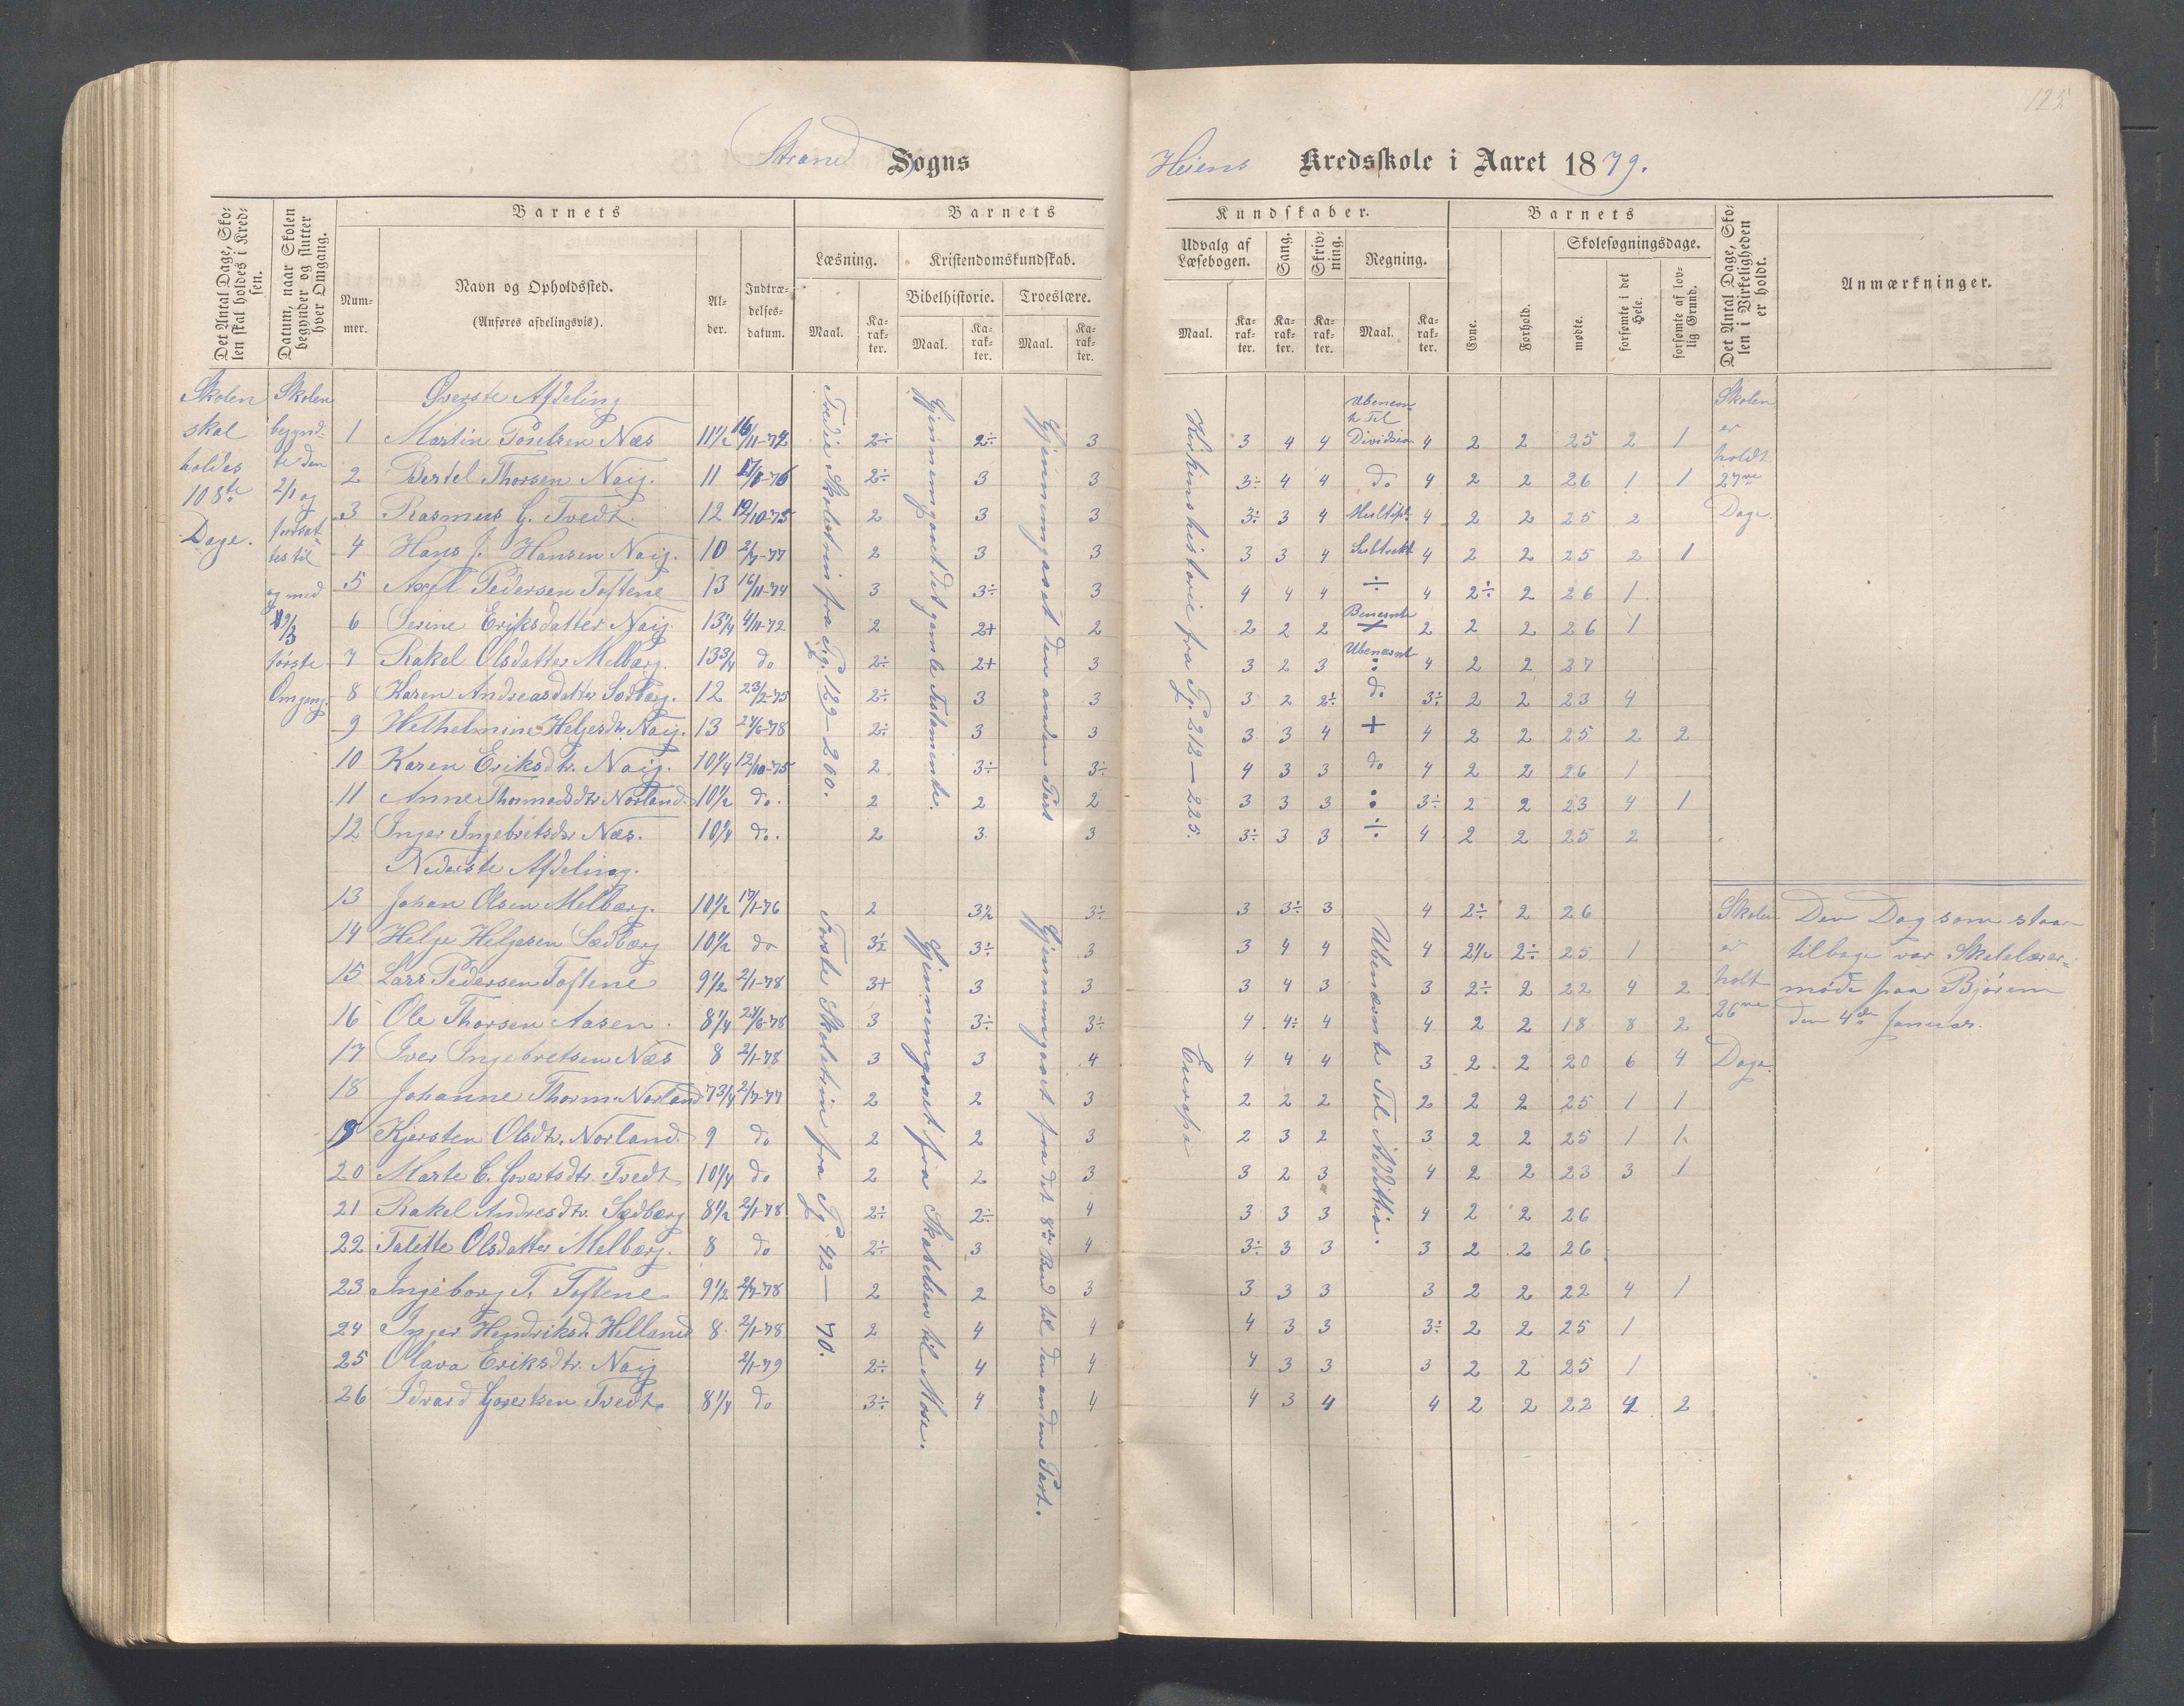 125
Strand Sogns Heiens Kredsskole i Aaret 1879.
Det Antal Dage, Skolen skal holdes i Kredsen.
Datum, naar Skolen begynder og slutter hver Omgang.
Barnets
Nummer.
Navn og Opholdssted.
(Anføres afdelingsvis).
Alder.
Indtrædelsesdatum.
Barnets Kundskaber.
Læsning.
Maal.
Karakter.
Kristendomskundskab.
Bibelhistorie.
Maal.
Karakter.
Troeslære.
Maal.
Karakter.
Udvalg af Læsebogen.
Maal.
Karakter.
Sang.
Karakter.
Skrivning.
Karakter.
Regning.
Maal.
Karakter.
Barnets
Evne.
Forhold.
Skolesøgningsdage.
mødte.
forsømte i det Hele.
forsømte af lovlig Grund.
Det Antal Dage, Skolen i Virkeligheden er holdt.
Anmærkninger.
Skolen skal holdes 108te Dage.
Skolen begyndte den 2/1 og fortsattes til og med første Omgang.
Øverste Afdeling
1 Martin Poulsen Næs 11 1/2 16/11-74 2÷ 2÷ 3 3 4 4 Division 4 2 2 25 2 1
2 Bertel Thorsen Naig. 11 2÷ 3 3 3÷ 4 4 do 4 2 2 26 1 1
3 Rasmus G. Tvedt. 12 12/10-75 2 3 3 3÷ 3 4 Multipl. 4 2 2 25 2
4 Hans J. Hansen Naig. 10 2/7-77 2 3 3 3 3 4 Subtrakt 4 2 2 25 2 1
5 Axel Pedersen Toftene 13 16/11-74 3 3÷ 3 4 4 4 ÷ 4 2÷ 2 26 1
6 Serine Eriksdatter Naig. 13 1/4 4/11-72 2 2+ 2 2 2 2 Benævnte + 2 2 2 26 1
7 Rakel Olsdatter Melbærg. 13 3/4 do 2÷ 2+ 3 3 2 3 Ubenævnt : 4 2 2 27
8 Karen Andreasdatter Sodbærg. 12 23/2-75 2÷ 3 3 3 2 2÷ do 3÷ 2 2 23 4
9 Helhelmine Helgesdtr. Naig. 13 24/6-78 2÷ 3 3 3 3 4 + 4 2 2 25 2 2
10 Karen Eriksdtr. Naig. 10 1/4 12/10-75 2 3÷ 3÷ 4 3 3 do 4 2 2 26 1
11 Anne Thormodsdtr Norland. 10 1/2 do. 2 2 2 3 3 3 : 3÷ 2 2 23 4 1
12 Inger Ingebritsdtr Næs. 10 1/4 do. 2 3 3 3÷ 3 3 ÷ 4 2 2 25 2
Tredie Skoletrin fra Pg. 129–200.
Gjennemgaaet det gamle Testamente.
Gjennemgaaet den anden Part
Kirkens historie fra Pg. 212–225.
Skolen er holdt 27ve Dage.
Nederste Afdeling.
13 Johan Olsen Melbærg. 10 1/2 17/1-76 2 3 1/2 3÷ 3 3÷ 3 4 2÷ 2 26
14 Helge Helgesen Sædbærg 10 1/2 do 3 1/2 3÷ 3 3 4 4 4 2 1/2 2÷ 25 1
15 Lars Pedersen Toftene 9 1/2 2/1-78 3+ 3 3 3 4 3 3 2÷ 2 22 4 2
16 Ole Thorsen Aasen. 8 1/4 24/6-78 3 3÷ 3÷ 4 4÷ 4 4 2 2 18 8 2
17 Iver Ingebretsen Næs 8 2/1-78 3 3 4 4 4 4 3 2 2 20 6 4
18 Johanne Thorm. Norland 7 3/4 2/7-77 2 2 3 2 2 2 2 2 2 25 1 1
19 Kjersten Olsdtr. Norland. 9 do 2 2 3 2 3 2 3 2 2 25 1 1
20 Marte C. Govertsdtr. Tvedt 10 1/4 do 2 2 3 3 2 3 4 2 2 23 3 1
21 Rakel Andresdtr. Sædbærg 8 1/2 2/1-78 2÷ 2÷ 4 3 3 3 4 2 2 26
22 Talette Olsdatter Melbærg. 8 do 2÷ 3 4 3÷ 3 3 3 2 2 26
23 Ingeborg T. Toftene 9 1/2 2/7-78 2 2 3 3 3 3 3 2 2 22 4 1
24 Inger Hendriksd. Helland 8 2/1-78 2 4 4 4 3 3 3÷ 2 2 25 1
25 Olava Eriksdtr. Naig 2/1-79 2÷ 4 4 4 3 3 3 2 2 25 1
26 Edvard Govertsen Tvedt. 8 1/4 do 3÷ 4 4 4 3 4 4 2 2 22 4 2
Første Skoletrin fra Pg 42–70.
Gjennemgaaet fra Skabelsen til Mose.
Gjennemgaaet fra det 8de Bud til den anden Part.
Europa
Ubenævnte Tal Addition.
Skolen er holt 26ve Dage.
Den Dag som staar
tilbage var Skolelærer-
møde paa Bjørem
den 4de Januar.